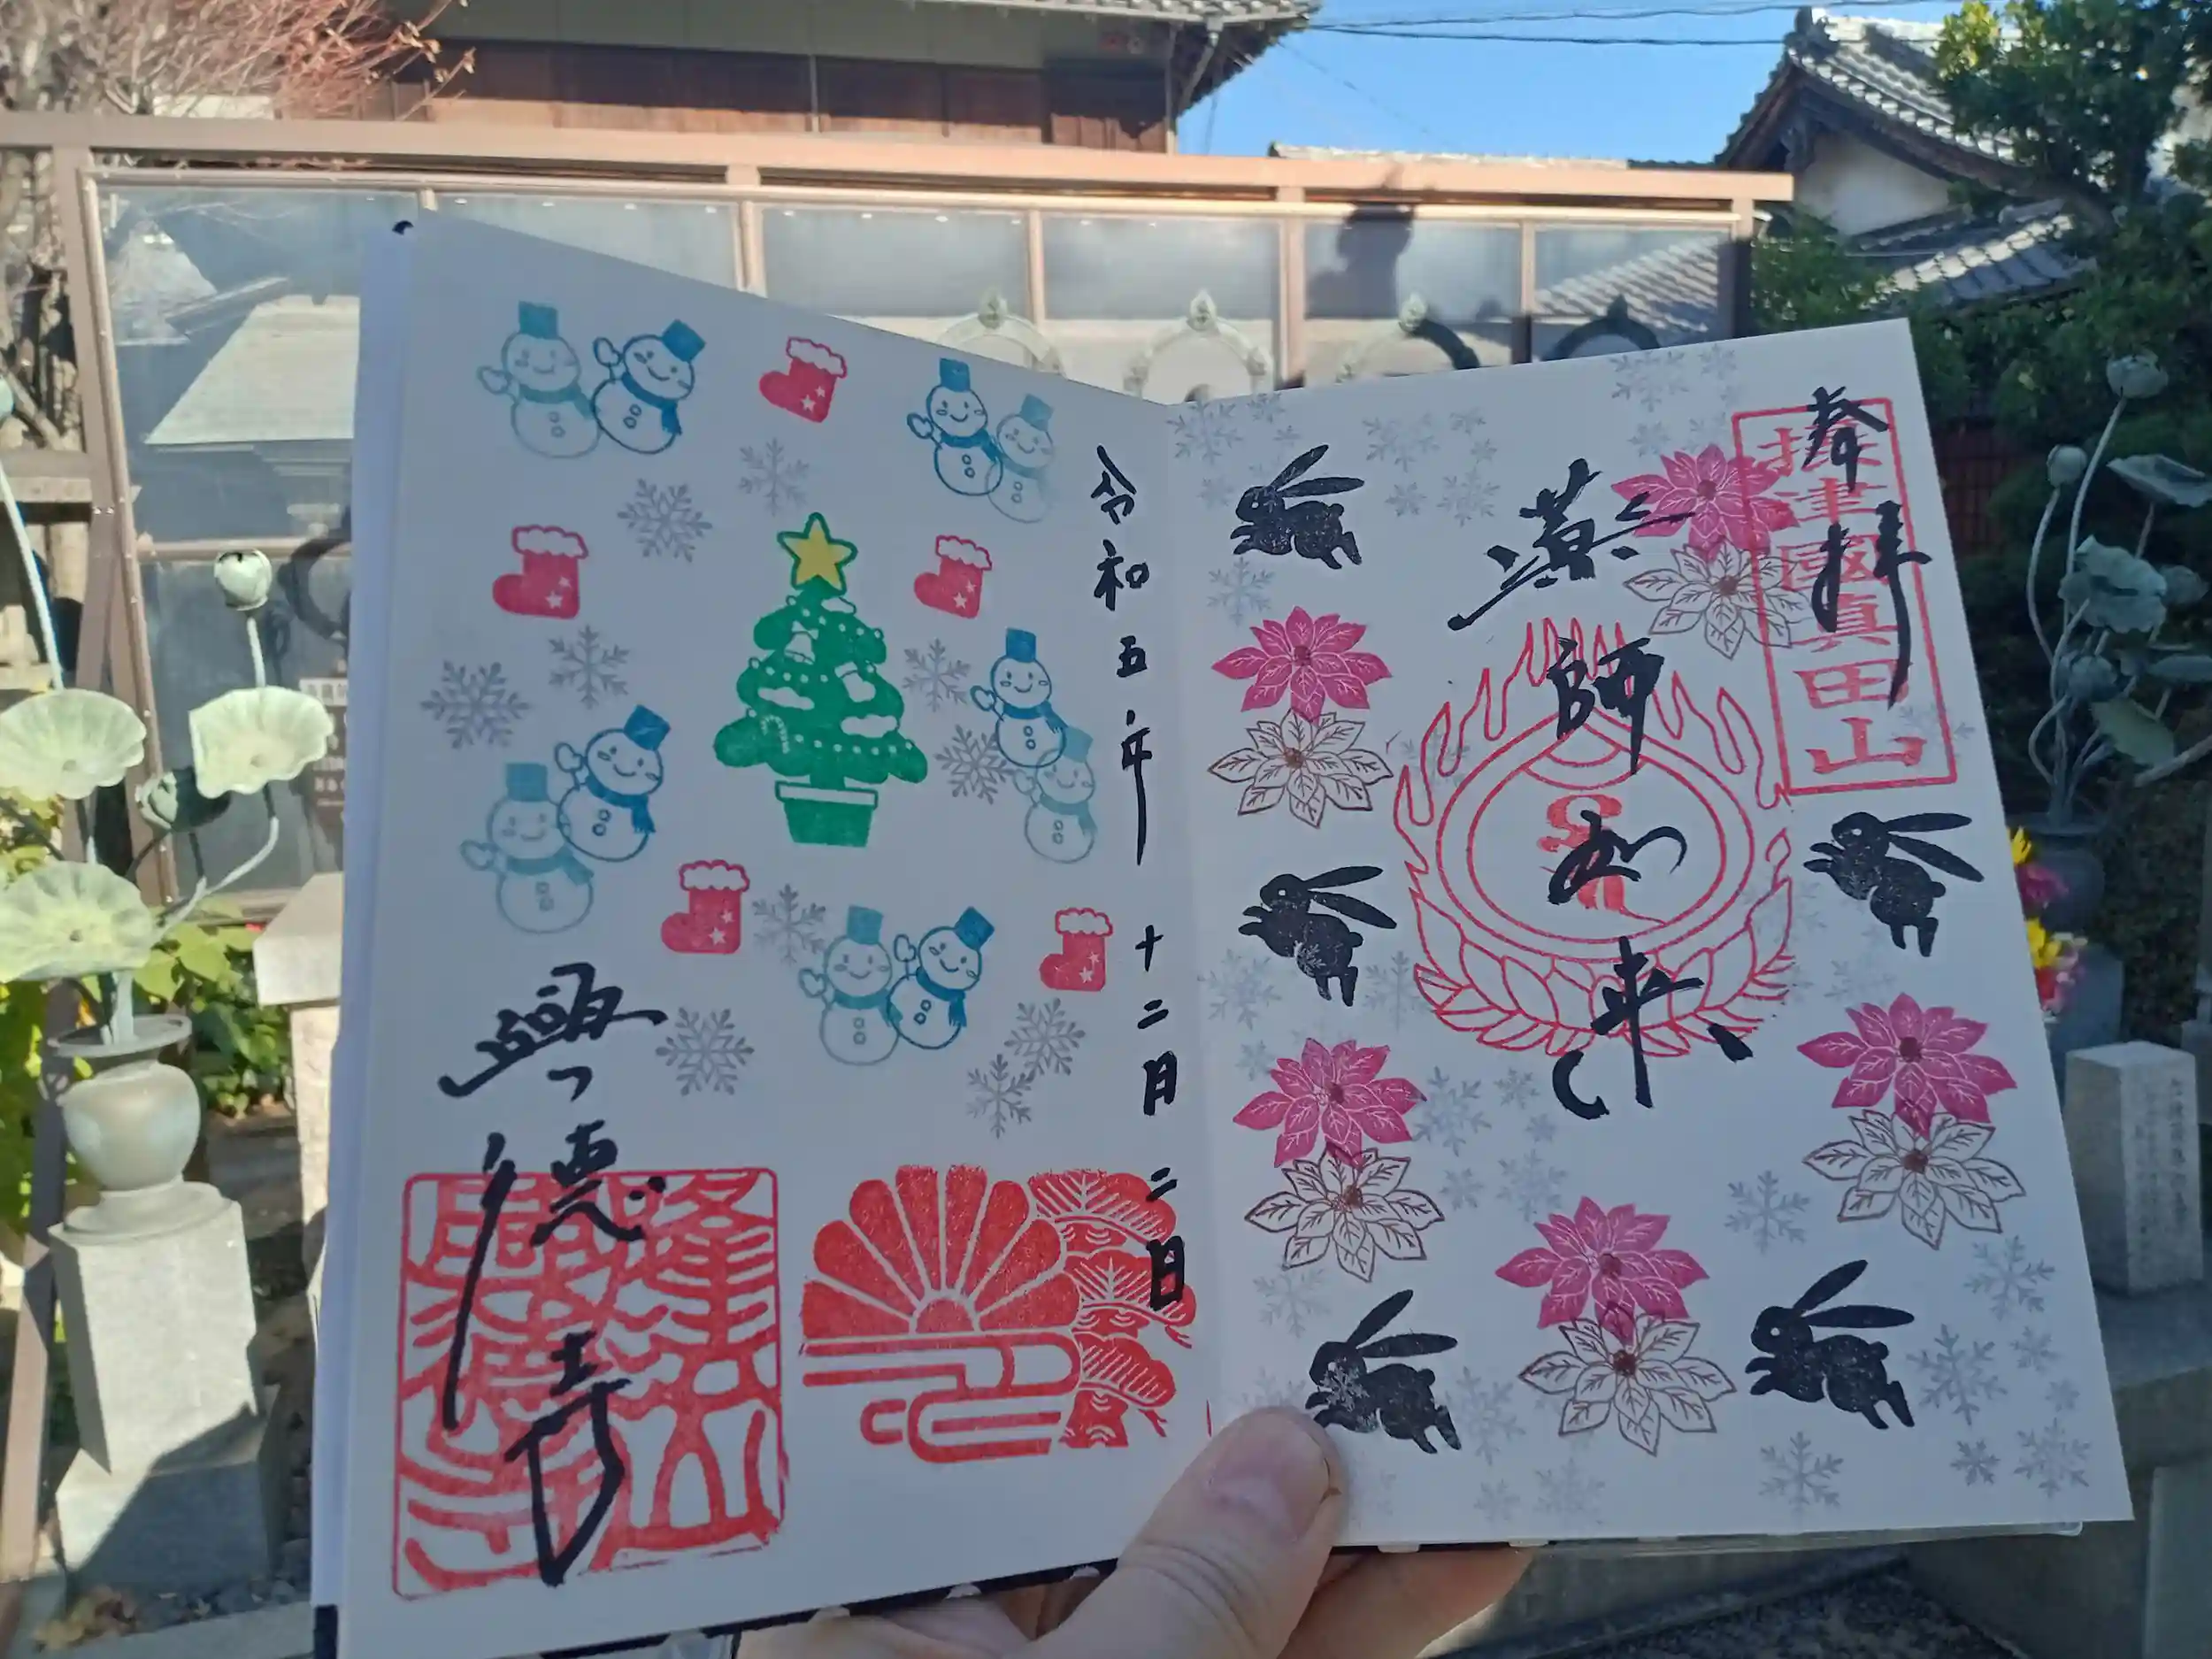 奉拝
摂津國真田山
薬師如来
令和五年十二月二日
興徳寺